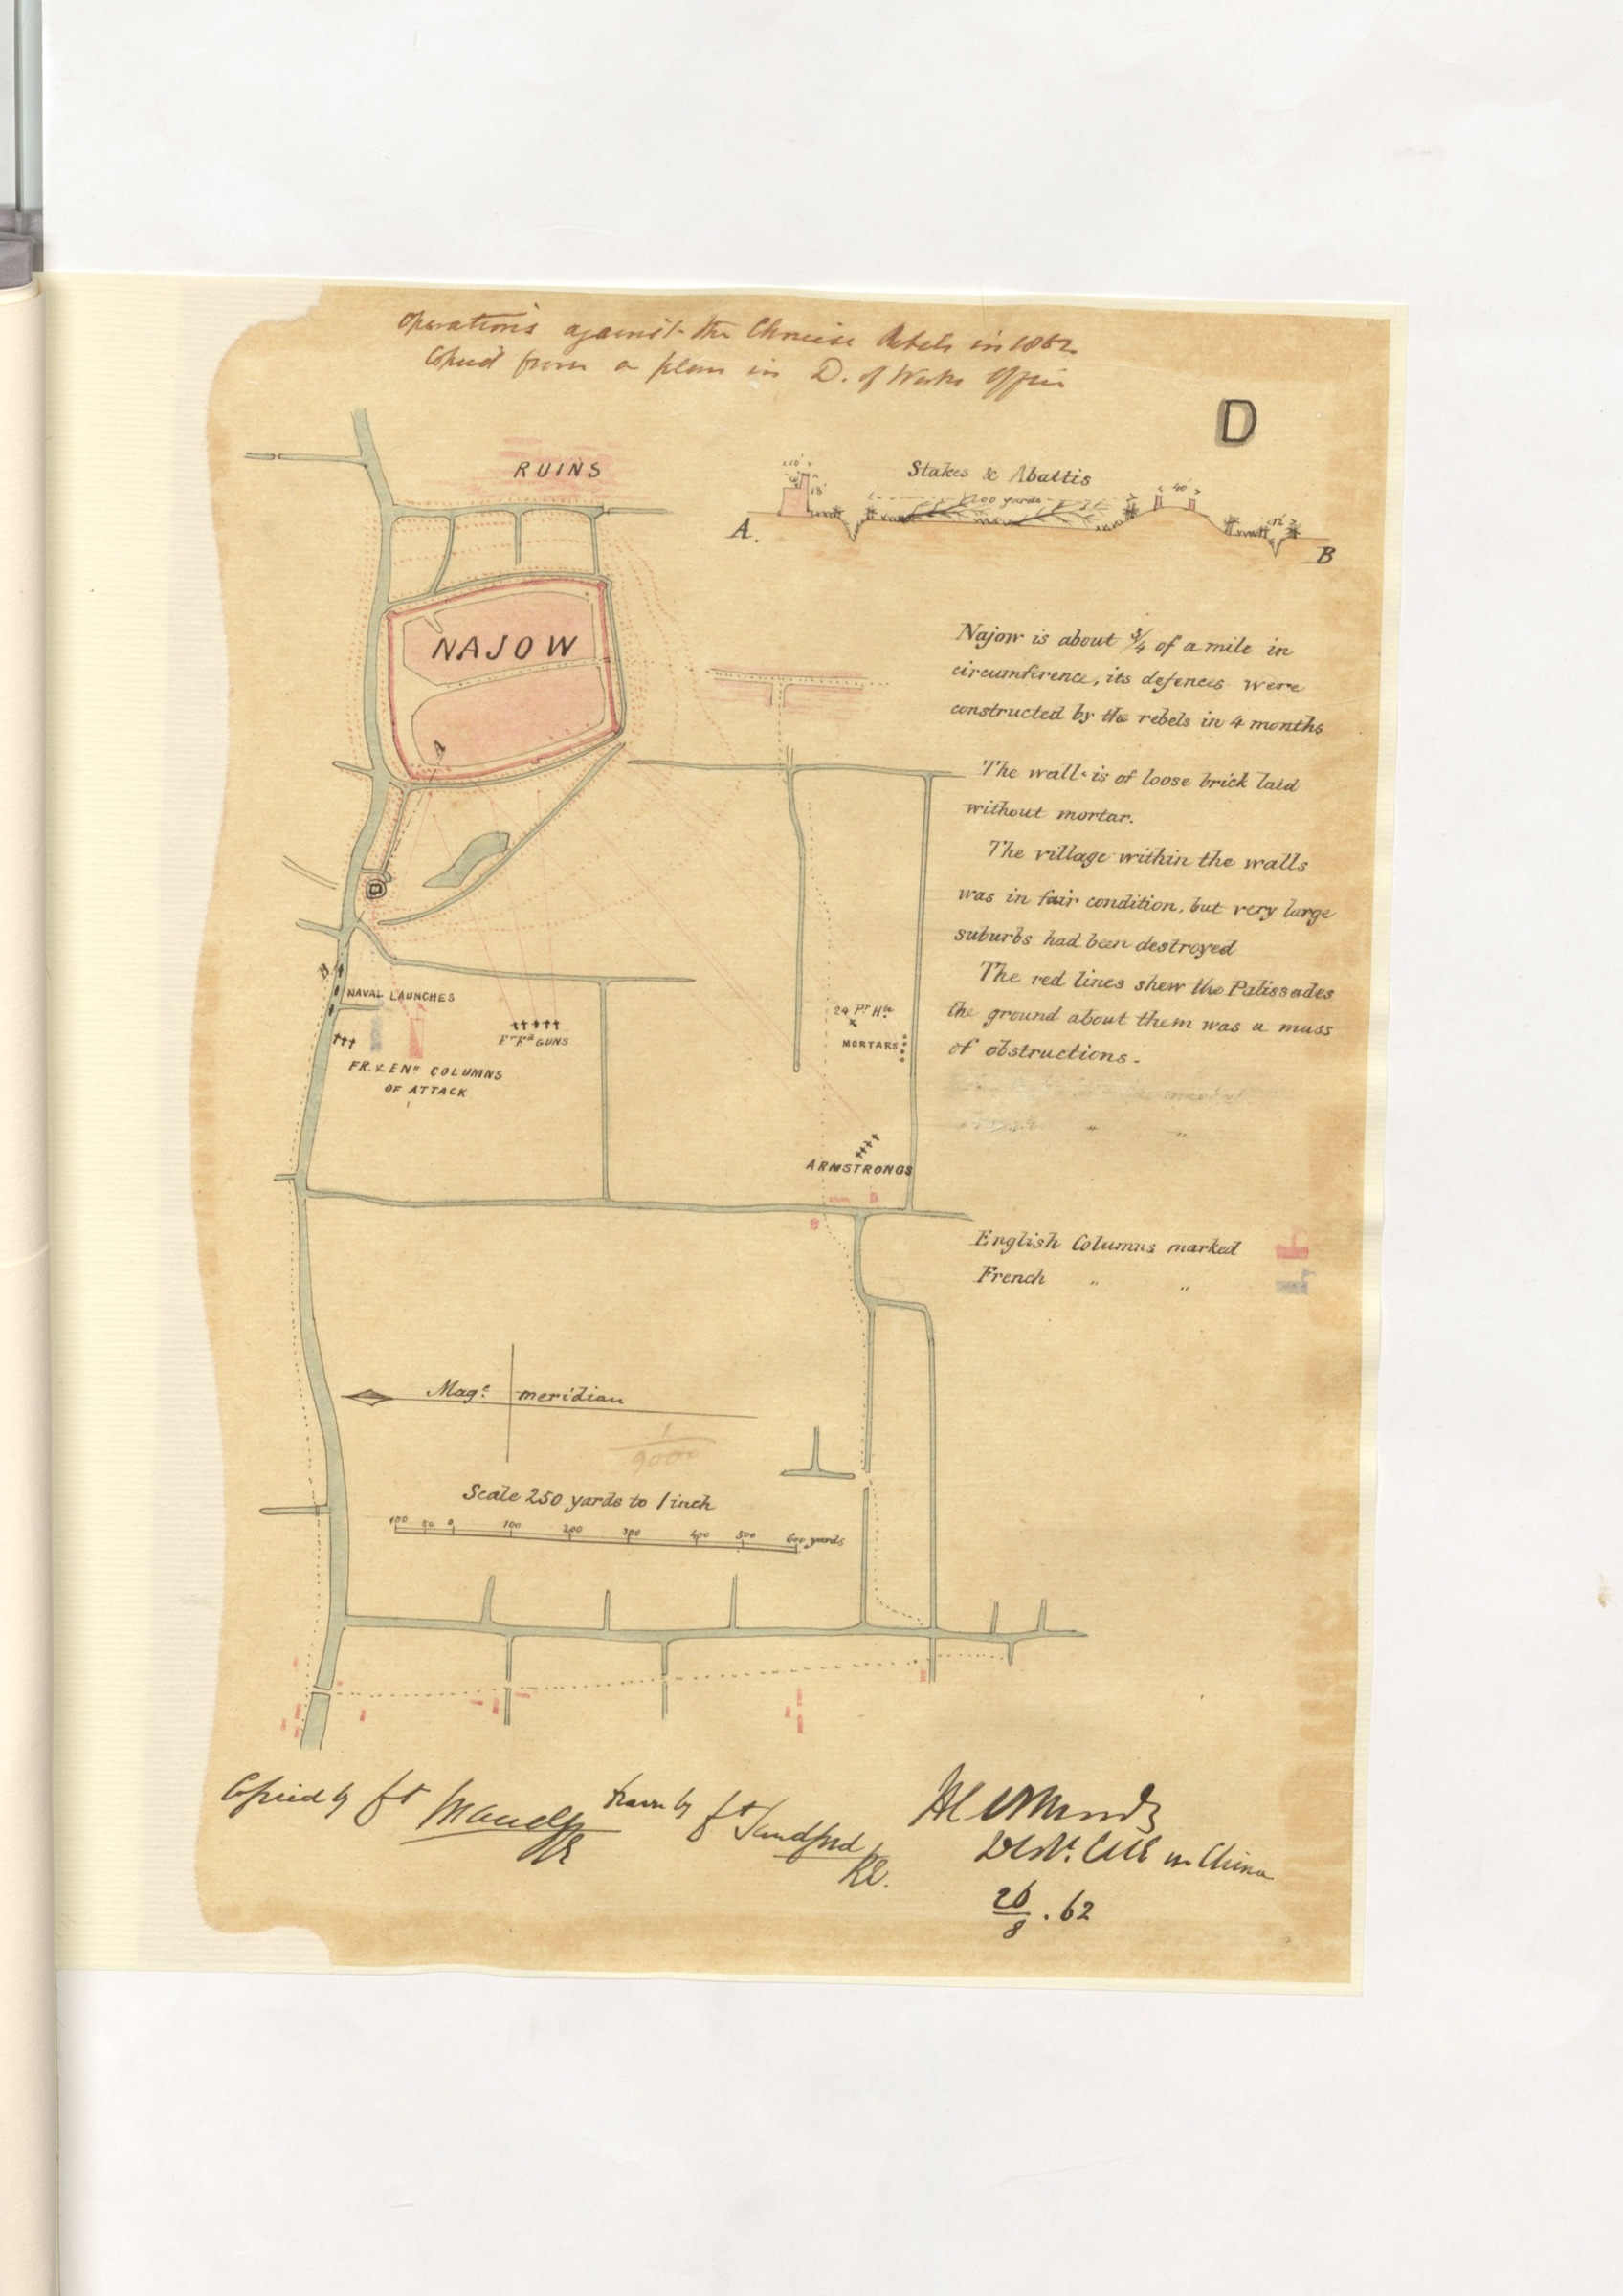 Operations against the Chinese Rebels in 1862
Copied from a plan in D. of Works Office
D
RUINS
Stakes & Abattis
10'
18'
200 yards
40'
A.
B
NAJOW
A
Najow is about 3/4 of a mile in
circumference, its defences were
constructed by the rebels in 4 months
The wall is of loose brick laid
without mortar.
The village within the walls
was in fair condition, but very large
suburbs had been destroyed
The red lines shew the Palissades
the ground about them was a mass
of obstructions.
B.
NAVAL LAUNCHES
Fr Fd GUNS
24 Pr Htr
MORTARS
FR. & ENH COLUMNS
OF ATTACK
ARMSTRONGS
English Columns marked
French " "
Magc meridian
1/9000
Scale 250 yards to 1 inch
100 50 0 100 200 300 400 500 600 yards
Copied by Lt
drawn by Lt Sandford
RE.
in China
26/8 . 62